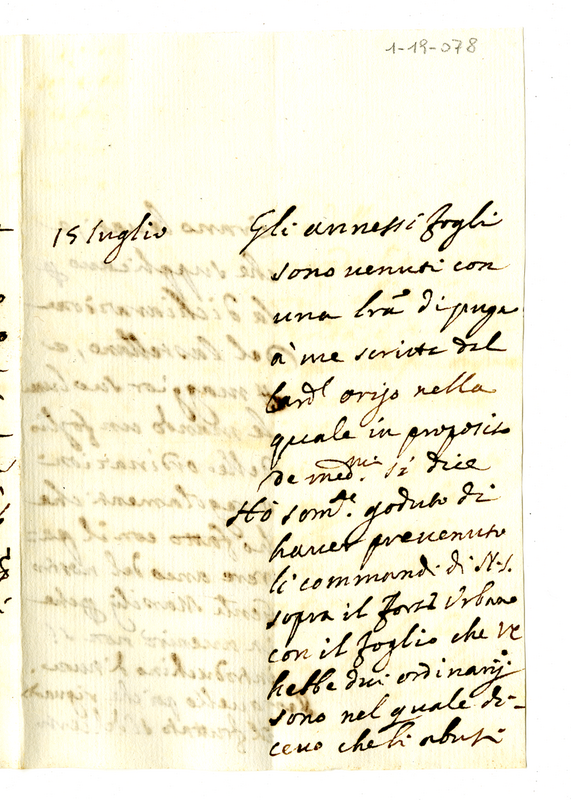 1-19-078
15 luglio
Gli annessi fogli
sono venuti con
una lrã di pugo
à me scritta dal
Cardl origo nella
quale in proposito
de medmi si dice
Hò somte goduto di
haver prevenuto
li commandi di N.S.
sopra il forte Urbano
con il foglio che VE
hebbe dui ordinarij
sono nel quale di-
cevo che li abusi